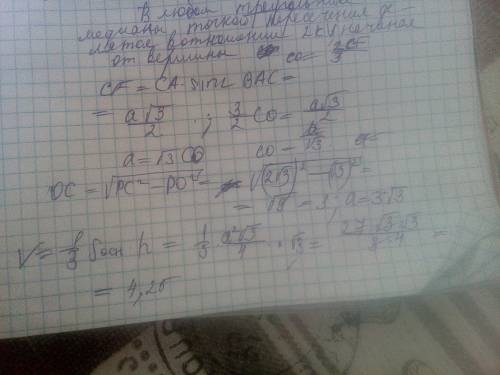 В любом треугольнике
медианы точкой пересечения де-
лятся в отношении 2 к 1, начиная
от вершины CO = 2/3 CF
CF = CA sin∠BAC =
= a√3/2 ; 3/2 CO = a√3/2
a = √3 CO CO = a/√3
OC = √(PC² − PO²) = √((2√3)² − (√3)²) =
= √9 = 3; a = 3√3
V = 1/3 Sосн h = 1/3 · a²√3/4 · √3 =
= 4,25